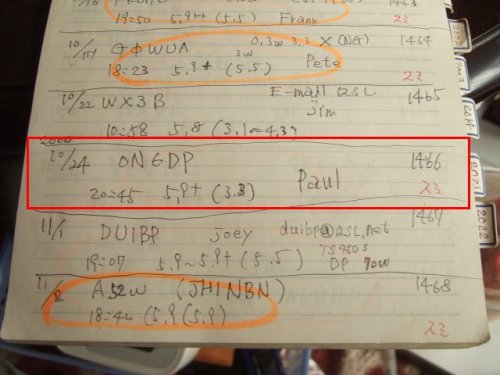 1463
19=50 5,9++ (5.5) Frank 23
10/19 G4WUA 0.3w 3.3 X (NG) 1464
3w
18=23 5,9+ (5.5) Pete 23
10/22 WX3B E-mail QSL 1465
jim
10=58 5,8 (3,1~4,3)
2000
10/24 ON6DP 1466
20=45 5,9+ (3.3) Paul 23
1467
11/1 DU1BP joey duibp@QSL,net
TS450S
19=07 5,9~5,9+ (5.5) DP 70W
11/2 A52W (JH1NBN) 1468
18=42 (5,9(5,9) 23
2022